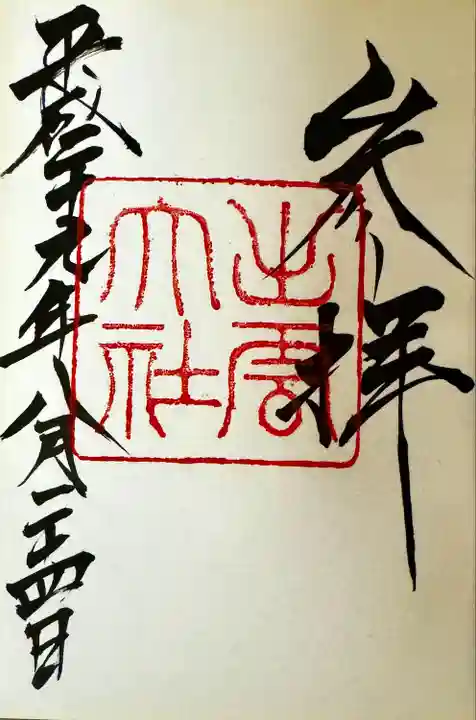 参拝
出雲
大社
平成二十九年八月二十四日